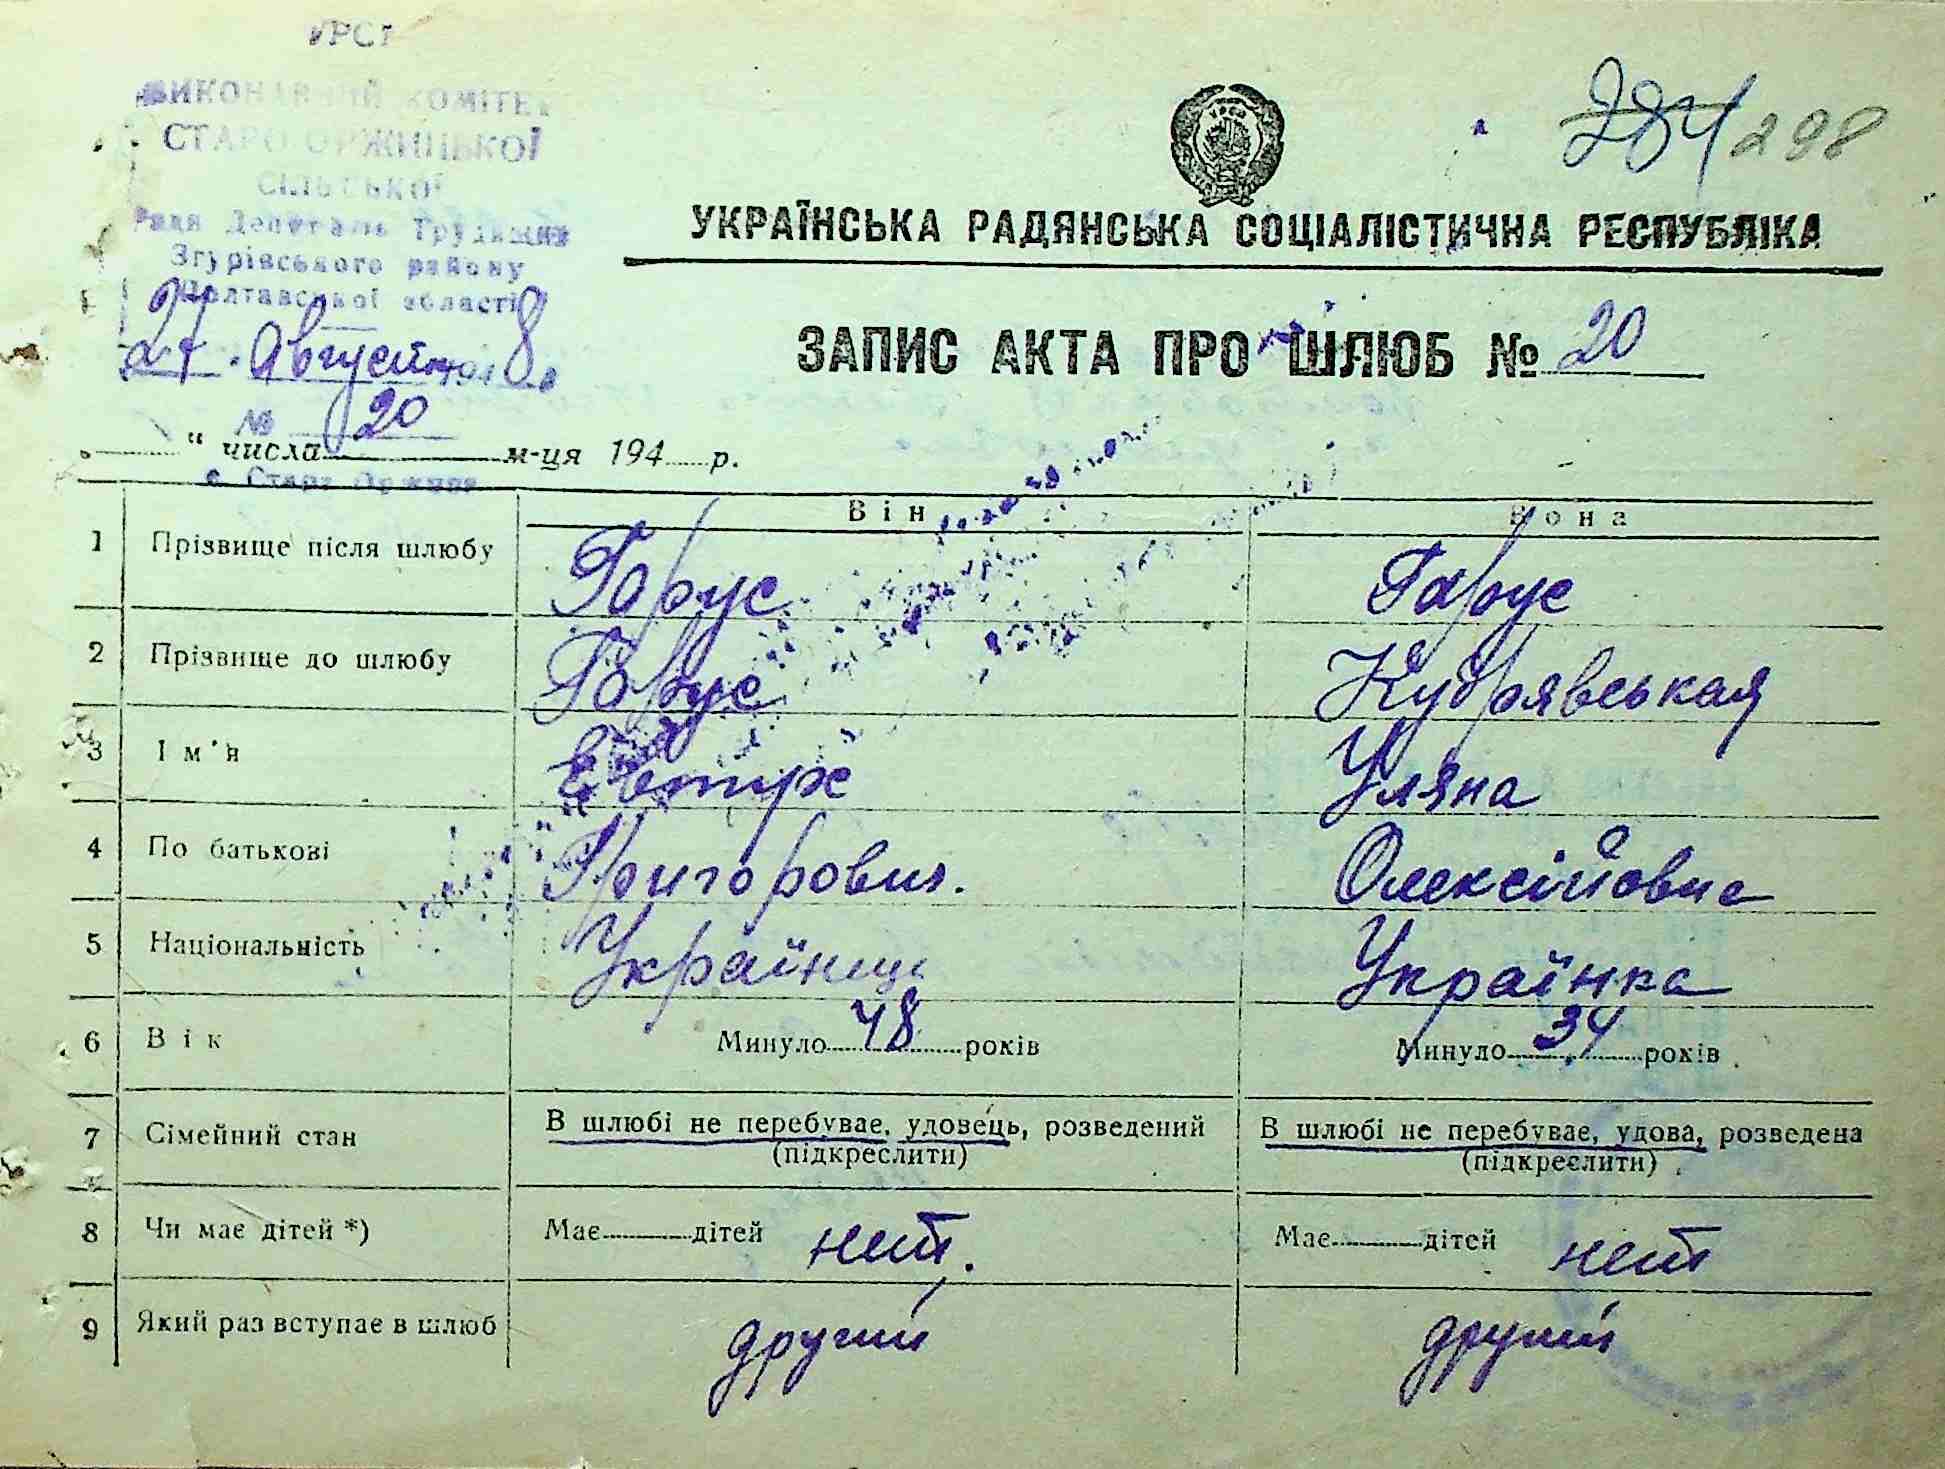 УРСР
ВИКОНАВЧИЙ КОМІТЕТ
СТАРО ОРЖИЦЬКОЇ
СІЛЬСЬКОЇ
Ради Депутатів Трудящих
Згурівського району
Полтавської області
27 Август 194 8 р
№ 20
с. Стара Оржиця
284 298
УРСР
УКРАЇНСЬКА РАДЯНСЬКА СОЦІАЛІСТИЧНА РЕСПУБЛІКА
ЗАПИС АКТА ПРО ШЛЮБ № 20
" числа м-ця 194 р.
Він Вона
1 Прізвище після шлюбу Гарус Гарус
2 Прізвище до шлюбу Гарус Кудрявськая
3 Ім'я Евтух Уляна
4 По батькові Григорович. Олексійовна
5 Національність Українець Українка
6 Вік Минуло 48 років Минуло 34 років
7 Сімейний стан В шлюбі не перебуває, удовець, розведений В шлюбі не перебуває, удова, розведена
(підкреслити) (підкреслити)
8 Чи має дітей *) Має дітей нет. Має дітей нет
9 Який раз вступає в шлюб другий другий